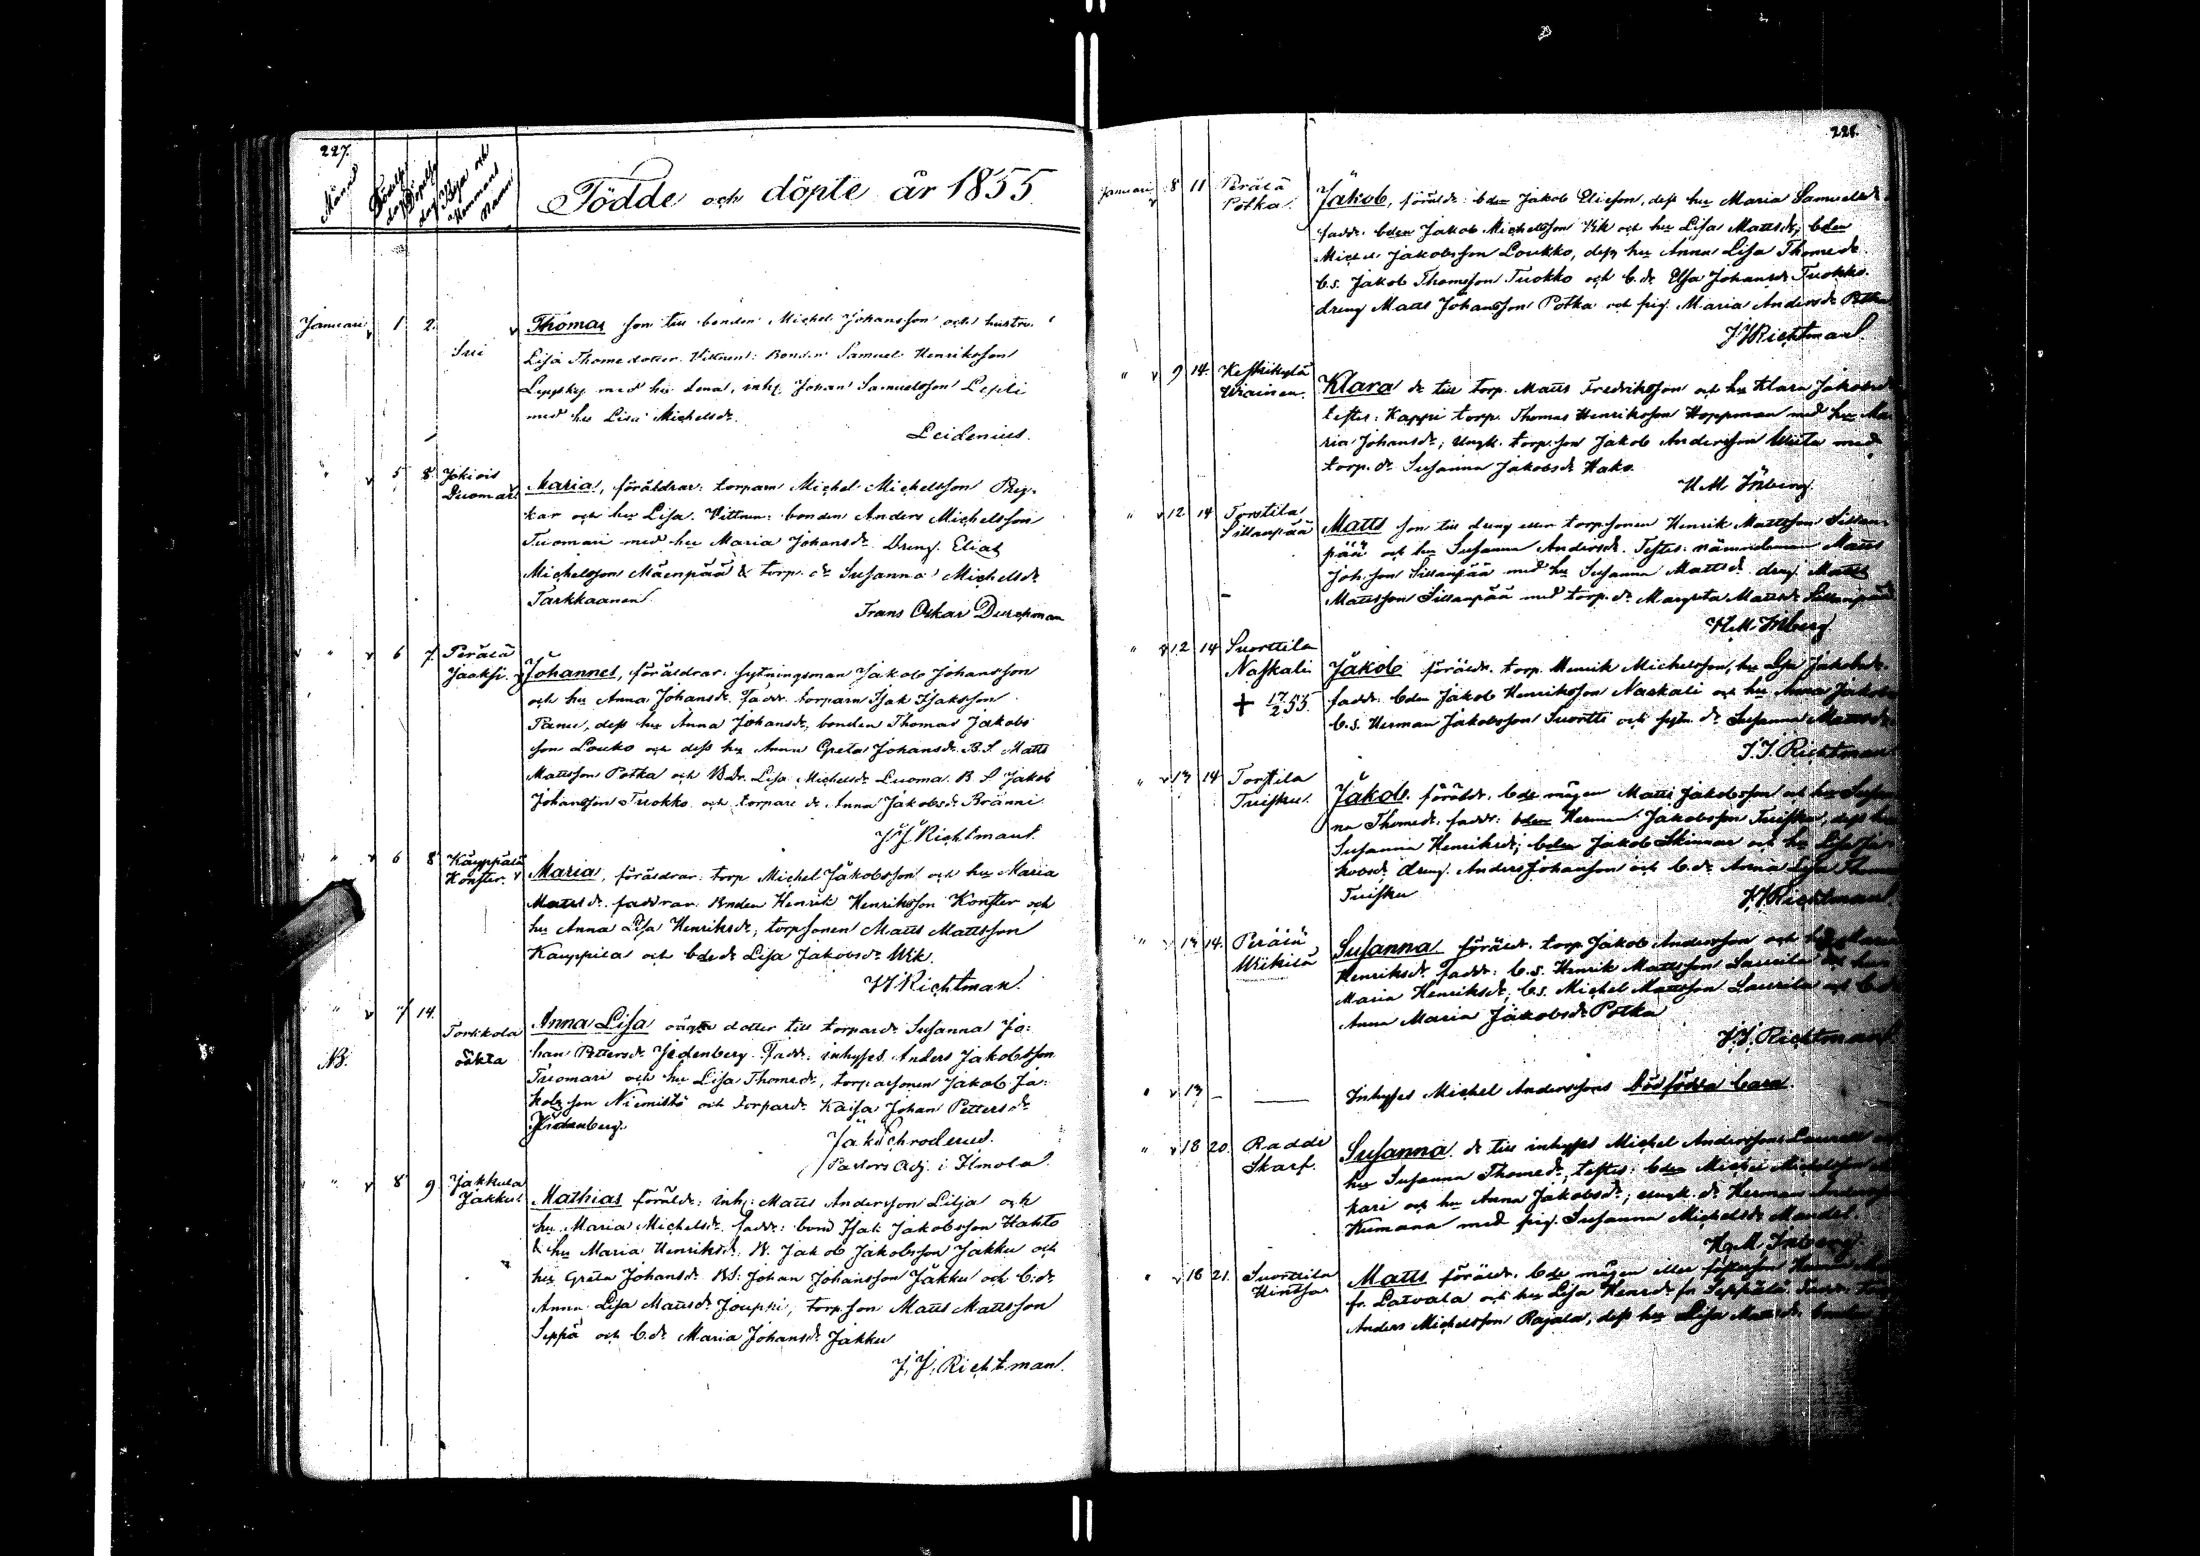 227.
Månad
Födelse dag
Döpelse dag
Byn och Hemmans Namn
Födde och döpte år 1855
Januari 1 2. Sui
Thomas son till bonden Michel Johansson och hustru
Lisa Thomedotter. Vittnen: Bonden Samuel Henriksson
med hu Lena, inhy. Johan Samuelsson Lepli
med hu Lisa Michelsdr.
Leidenius.
" 5 8 Jokiois Duomari
Maria, föräldrar: torparn Michel Michelsson Pry-
kar och hu Lisa. Vittnen: bonden Anders Michelsson
Tuomari med hu Maria Johansdr. Dreng. Elias
Michelsson Mäenpää & torp. dr Susanna Michelsdr
Tarkkaanen
Frans Oskar Durchman
" 6 7. Peräлä Jaaksi.
Johannes, föräldrar: sytningsman Jakob Johansson
och hu Anna Johansdr. Fadd. torparn Isak Isaksson
Panu, dess hu Anna Johansdr, bonden Thomas Jakobs
son Louko och dess hu Anna Greta Johansdr. B.S. Matts
Mattsson Potka och B.Dr. Lisa Michelsdr Luoma. B S Jakob
Johansson Tuokko och torpare dr Anna Jakobsdr Bränni
J.J. Richtman.
" 6 8 Kauppila Konster.
Maria, föräldrar: torp. Michel Jakobsson och hu Maria
Mattsdr. faddrar: Bonden Henrik Henriksson Konster och
hu Anna Lisa Henriksdr, torpsonen Matts Mattsson
Kauppila och bdedr Lisa Jakobsdr Wik.
J J Richtman.
" 7 14. Torkkola oäkta
NB.
Anna Lisa oägta dotter till torparedr Susanna Jo-
han Pettersdr Jedenberg. Fadd: inhyses Anders Jakobsson
Tuomari och hu Lisa Thomedr, torparsonen Jakob Ja-
kobsson Niemistö och torpardr Kaisa Johan Pettersdr
Jedenberg.
Jak Schroderus.
Pastors Adj. i Ilmola.
" 8 9 Jakkula Jakku.
Mathias föräldr: inh: Matts Andersson Lilja och
hu Maria Michelsdr. fadd: bond Isak Jakobsson Hahto
& hu Maria Henriksdr. B. Jakob Jakobsson Jakku och
hu Greta Johansdr. BS: Johan Johansson Jakku och b:dr
Anna Lisa Mattsdr Jouppi, torpson Matts Mattsson
Seppä och b.dr Maria Johansdr Jakku
J.J. Richtman.
228.
Januari 8 11 Perälä Potka.
Jakob, föräldr: bden Jakob Eliesson, dess hu Maria Samuelsdr.
fadd. bden Jakob Michelsson Wik och hu Lisa Mattsdr; bden
Michel Jakobsson Loukko, dess hu Anna Lisa Thomedr
b.s. Jakob Thomsson Tuokko och b.dr Elsa Johansdr Tuokko.
dreng Matts Johansson Potka och pig. Maria Andersdr Potka
J J Richtman.
" 9 14. Keskikylä Wiainen.
Klara dr till torp. Matts Fredriksson och hu Klara Jakobsdr
testes: Kappi torp. Thomas Henriksson Hoppman med hu Ma-
ria Johansdr; ungk. torp.son Jakob Andersson Wiita med
torp.dr Susanna Jakobsdr Hako.
H M Inberg.
" 12 14 Torstila Sillanpää
Matts son till dreng eller torpsonen Henrik Mattsson Sillan-
pää och hu Susanna Andersdr. Testes: nämndeman Matts
Joh.son Sillanpää med hu Susanna Mattsdr. dreng Matts
Mattsson Sillanpää med torp.dr Margreta Mattsdr Sillanpää
H.M. Inberg
" 12 14 Suorttila Naskali
+ 17/2 55.
Jakob föräldr. torp. Henrik Michelsson, hu Lisa Jakobsdr.
fadd. bden Jakob Henriksson Naskali och hu Anna Jakobs
b.s. Herman Jakobsson Suortti och sytn.dr Susanna Mattsdr.
J.J. Richtman
" 13 14 Torstila Tuisku.
Jakob. föräldr. bde mågen Matts Jakobsson och hu Susan-
na Thomedr. fadd: bden Herman Jakobsson Tuisku, dess hu
Susanna Henriksdr; bden Jakob Skinnar och hu Lisa Ja-
kobsdr, dreng. Anders Johansson och b.dr Anna Lisa
Tuisku
J J Richtman.
" 13 14. Perälä Wiikilä
Susanna föräldr. torp. Jakob Andersson och
Henriksdr. fadd: b.s. Henrik Mattsson Laurila och
Maria Henriksdr; b.s. Michel Mattsson Laurila och b.dr
Anna Maria Jakobsdr Potka
J.J. Richtman
" 13 – —
Inhyses Michel Anderssons dödfödda barn.
" 18 20. Radde Skarf.
Susanna dr till inhyses Michel Andersson
hu Susanna Thomedr; testes: bden Michel Michelsson
kari och hu Anna Jakobsdr; ungk. dr. Herman Andersson
Kumana med pig. Susanna Michelsdr Mandel.
H.M. Inberg
" 18 21. Suorttila Hintsa
Matts föräldr. bde mågen eller
fr. Latvala och hu Lisa Henrdr fr Seppälä. Fadd. torp
Anders Michelsson Rajala, dess hu Lisa Mattsdr. bonden